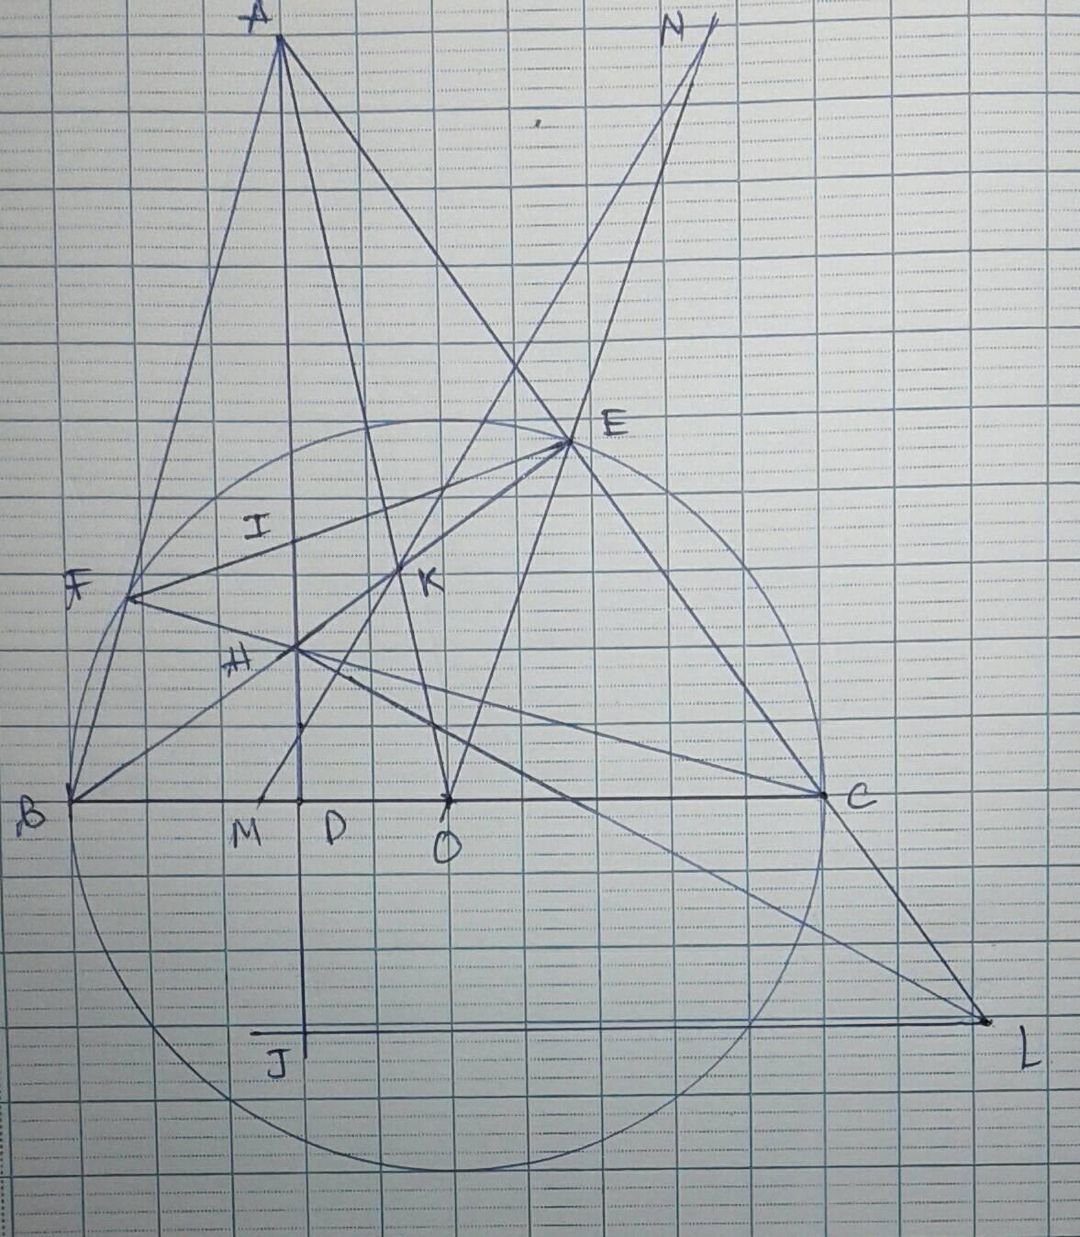 A
N
E
I
F
K
H
B
M
D
O
C
J
L